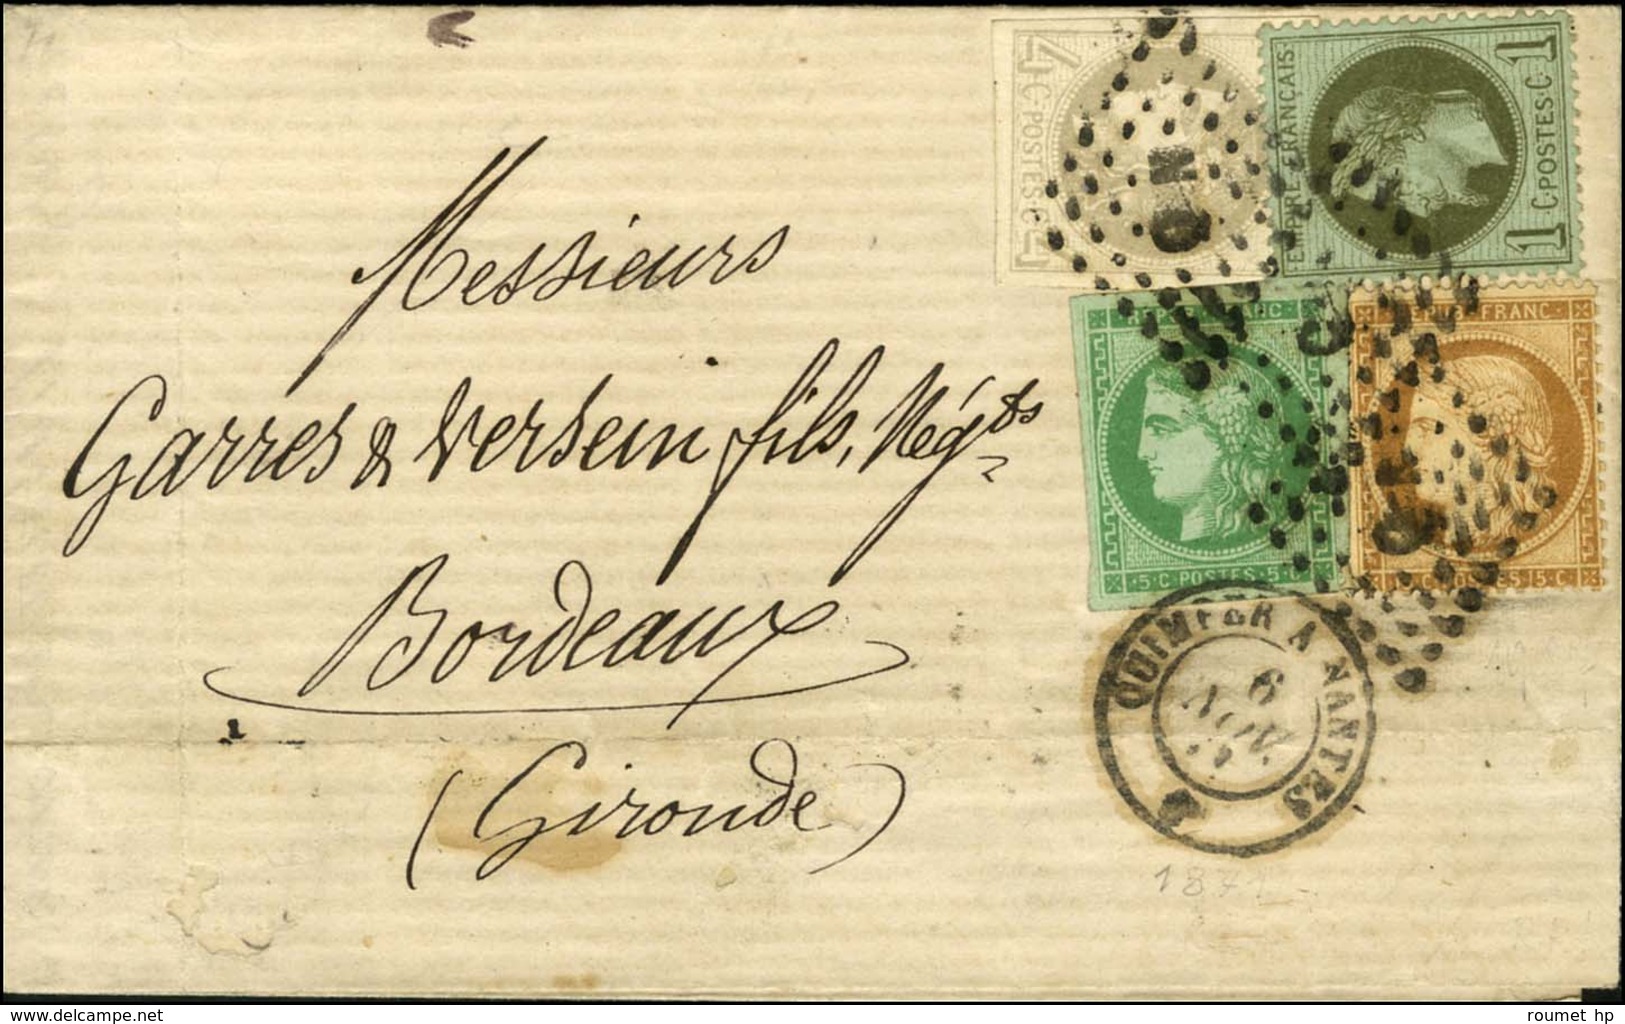 4 C. POSTES. C 4
EMPIRE FRANÇAIS
1 C. POSTES. C 1
Messieurs
REPUB. FRANC
REPUB. FRANC
Garres & Versein fils, Négts
5. C. POSTES. 5. C
C. POSTES 15 C.
Bordeaux
QUIMPER A NANTES
9
NOV.
71
(Gironde)
1871
delcampe.net
roumet hp